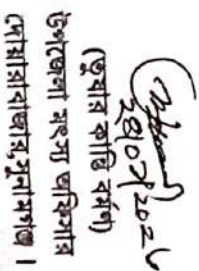 (তুষার কান্তি বর্মণ)
উপজেলা মৎস্য অফিসার
দোয়ারাবাজার, সুনামগঞ্জ ।